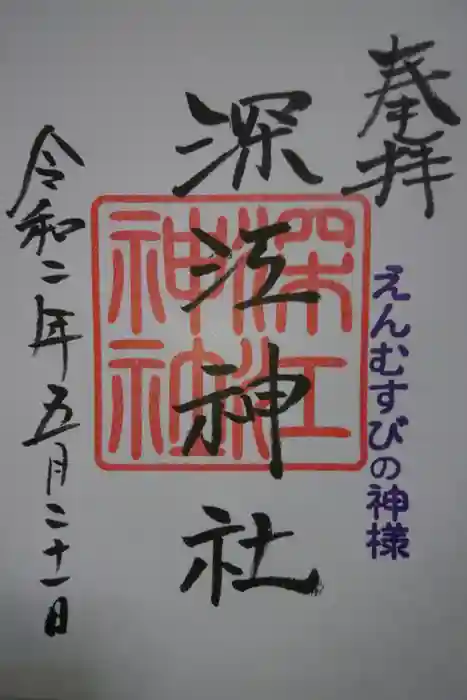 奉拝
えんむすびの神様
深江神社
深江
神社
令和二年五月二十一日